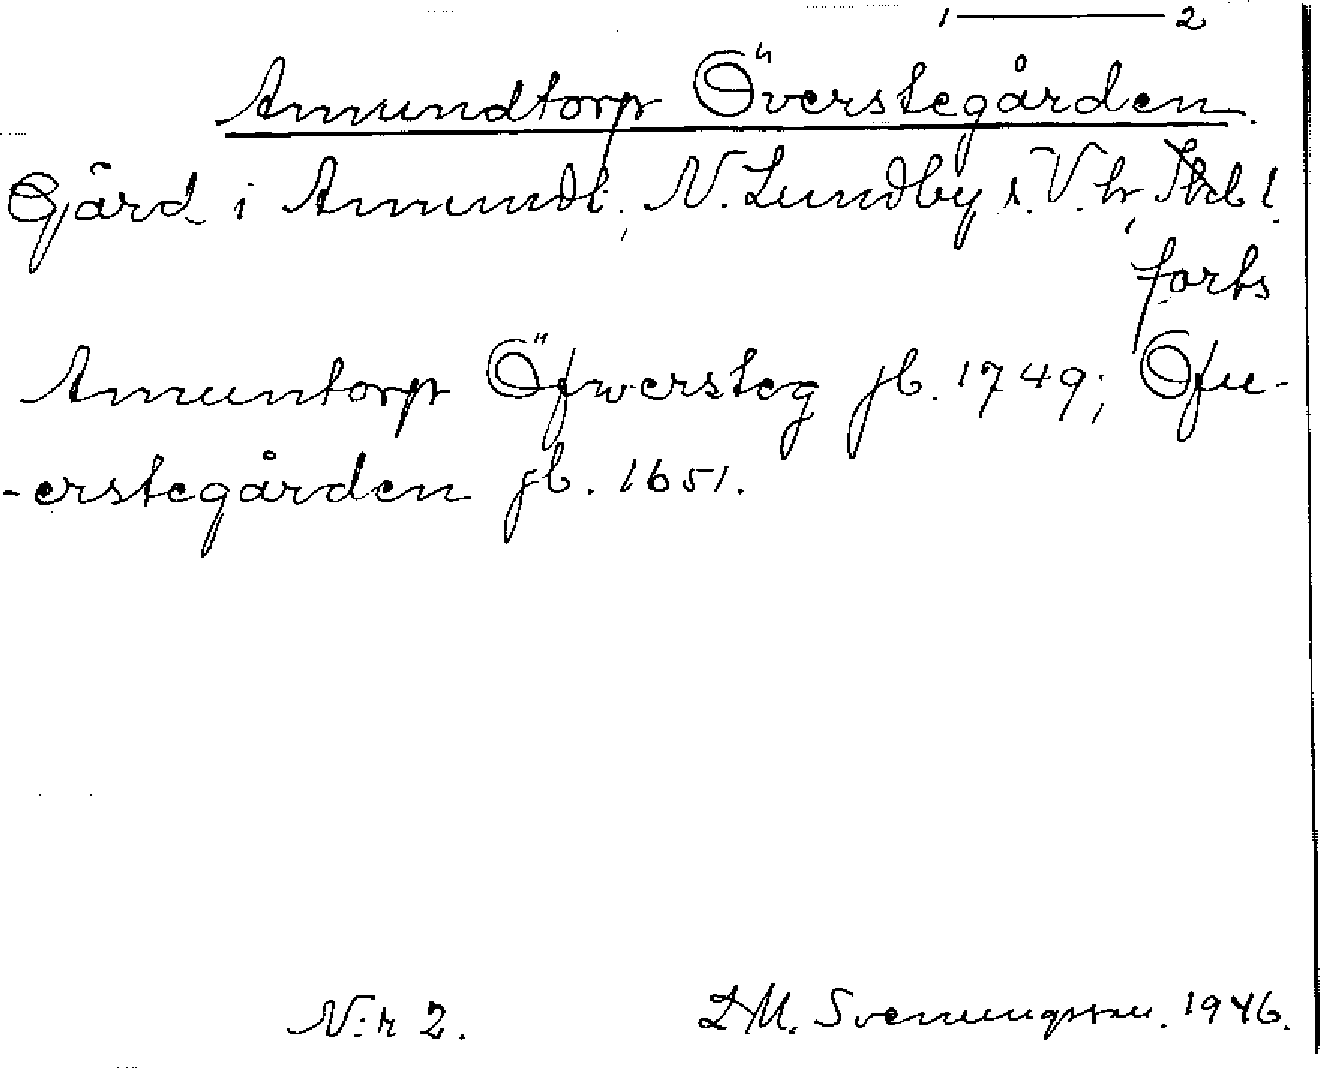 1 — 2
Amundtorp Överstegården.
Gård i Amundt., N. Lundby s. V. hr, Skbl.
forts
Amuntorp Öfwersteg jb. 1749; Öfu-
-erstegården jb. 1651.
N:r 2. D.M. Svenungsson. 1946.